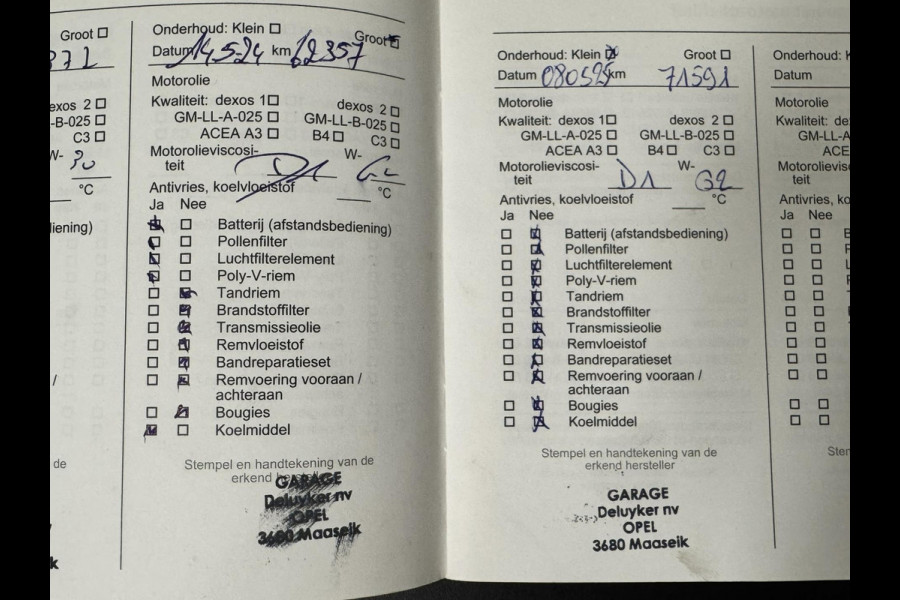 Groot
371
dexos 2
GM-LL-B-025
C3
W-
30
°C
iening)
/
de
k
Onderhoud: Klein Groot
Datum 14.5.24 km 62357
Motorolie
Kwaliteit: dexos 1 dexos 2
GM-LL-A-025 GM-LL-B-025
ACEA A3 B4 C3
Motorolieviscosi- W-
teit D1 G2
Antivries, koelvloeistof °C
Ja Nee
Batterij (afstandsbediening)
Pollenfilter
Luchtfilterelement
Poly-V-riem
Tandriem
Brandstoffilter
Transmissieolie
Remvloeistof
Bandreparatieset
Remvoering vooraan /
achteraan
Bougies
Koelmiddel
Stempel en handtekening van de
erkend hersteller
GARAGE
Deluyker nv
OPEL
3680 Maaseik
Onderhoud: Klein Groot
Datum 080525 km 71591
Motorolie
Kwaliteit: dexos 1 dexos 2
GM-LL-A-025 GM-LL-B-025
ACEA A3 B4 C3
Motorolieviscosi- W-
teit D1 G2
Antivries, koelvloeistof °C
Ja Nee
Batterij (afstandsbediening)
Pollenfilter
Luchtfilterelement
Poly-V-riem
Tandriem
Brandstoffilter
Transmissieolie
Remvloeistof
Bandreparatieset
Remvoering vooraan /
achteraan
Bougies
Koelmiddel
Stempel en handtekening van de
erkend hersteller
GARAGE
Deluyker nv
OPEL
3680 Maaseik
Onderhoud: K
Datum
Motorolie
Kwaliteit: de
GM-LL-A
ACE
Motorolievis
teit
Antivries, ko
Ja Nee
B
P
L
P
T
B
T
R
B
R
B
K
Ster